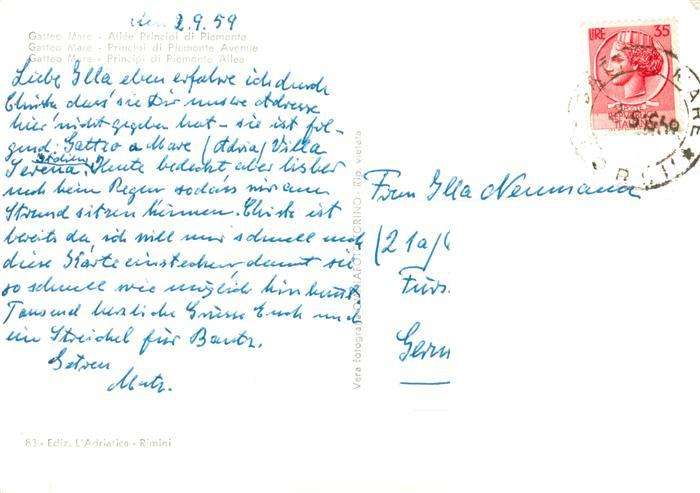 den 2.9.59
Gatteo Mare - Allée Principi di Piemonte
Gatteo Mare - Principi di Piemonte Avenue
Gatteo Mare - Principi di Piemonte Allee
Liebe Illa eben erfahre ich durch
Christa dass sie Dir unsere Adresse
hier nicht gegeben hat - sie ist fol-
gend: Gatteo a Mare (Adria) Villa
Serena. Italien Heute bedeckt aber bisher
noch kein Regen sodass wir am
Strand sitzen können. Christa ist
bereits da, ich will nur schnell noch
diese Karte einstecken damit sie
so schnell wie möglich hinkommt
Tausend herzliche Grüsse Euch und
ein Streichel für Bautz.
83 - Ediz. L'Adriatica - Rimini
Vera fotografia - TORINO - Rip. vietata
LIRE 35
MARE
Frau Illa Neumann
(21a)
Fürs
Germ